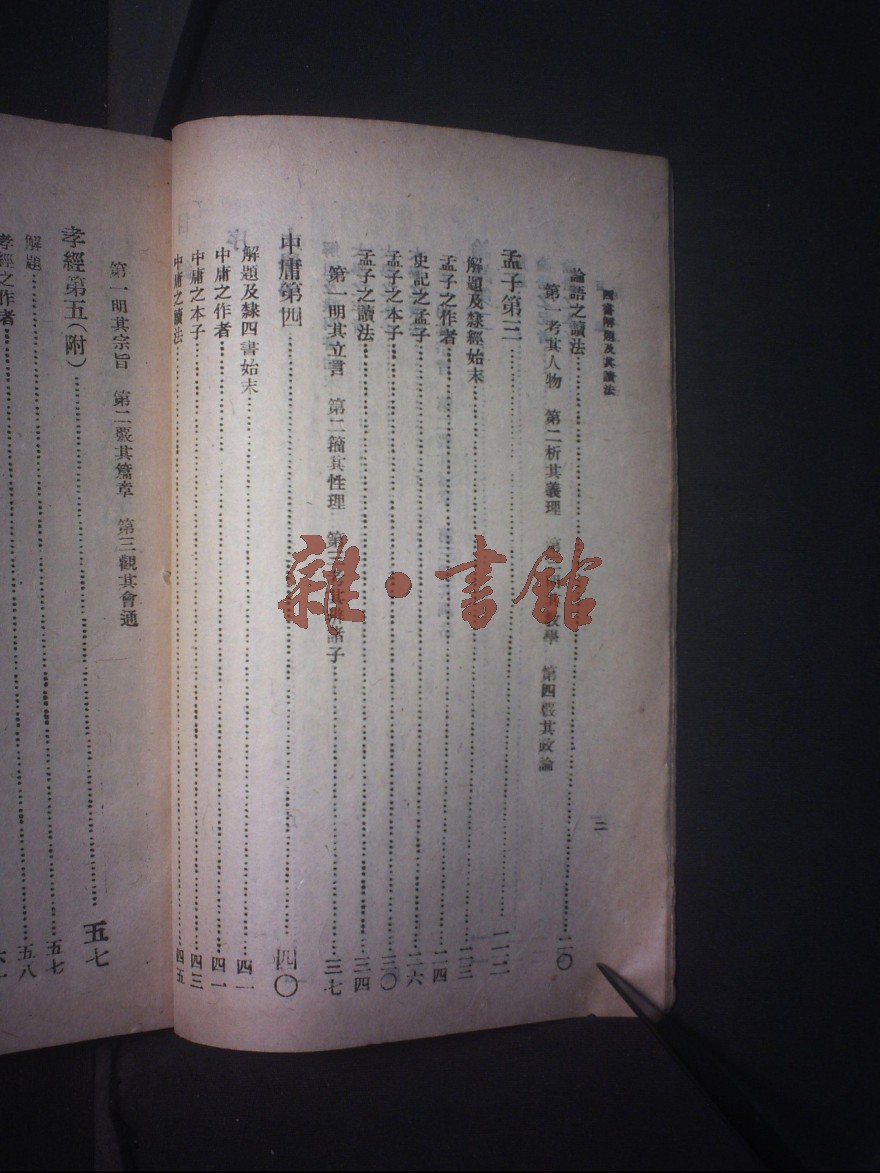 四書解題及其讀法
二
論語之讀法……二〇
第一考其人物 第二析其義理 第三明其敎學 第四覈其政論
孟子第三……二二
解題及隸經始末……二三
孟子之作者……二四
史記之孟子……二六
孟子之本子……三〇
孟子之讀法……三四
第一明其立言 第二籀其性理 第三 諸子……三七
中庸第四……四〇
解題及隸四書始末……四一
中庸之作者……四一
中庸之本子……四三
中庸之讀法……四五
第一明其宗旨 第二覈其篇章 第三觀其會通
孝經第五(附)……五七
解題……五七
孝經之作者……五八
雜·書館